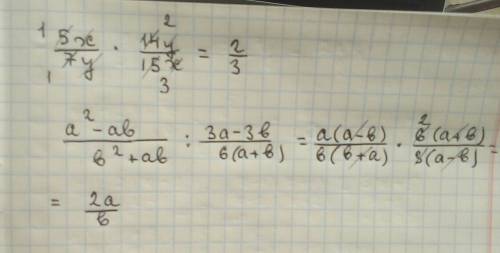 1 5x/7y 1 · 2 14y/15x 3 = 2/3
(a² - ab)/(b² + ab) : (3a - 3b)/(6(a+b)) = a(a-b)/(b(b+a)) · 2 6(a+b)/(3(a-b)) =
= 2a/b